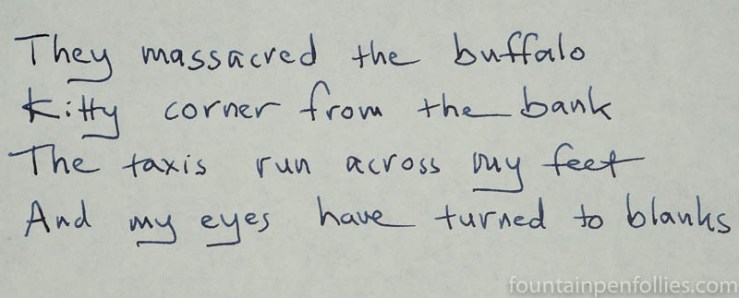 They massacred the buffalo
Kitty corner from the bank
The taxis run across my feet
And my eyes have turned to blanks
fountainpenfollies.com